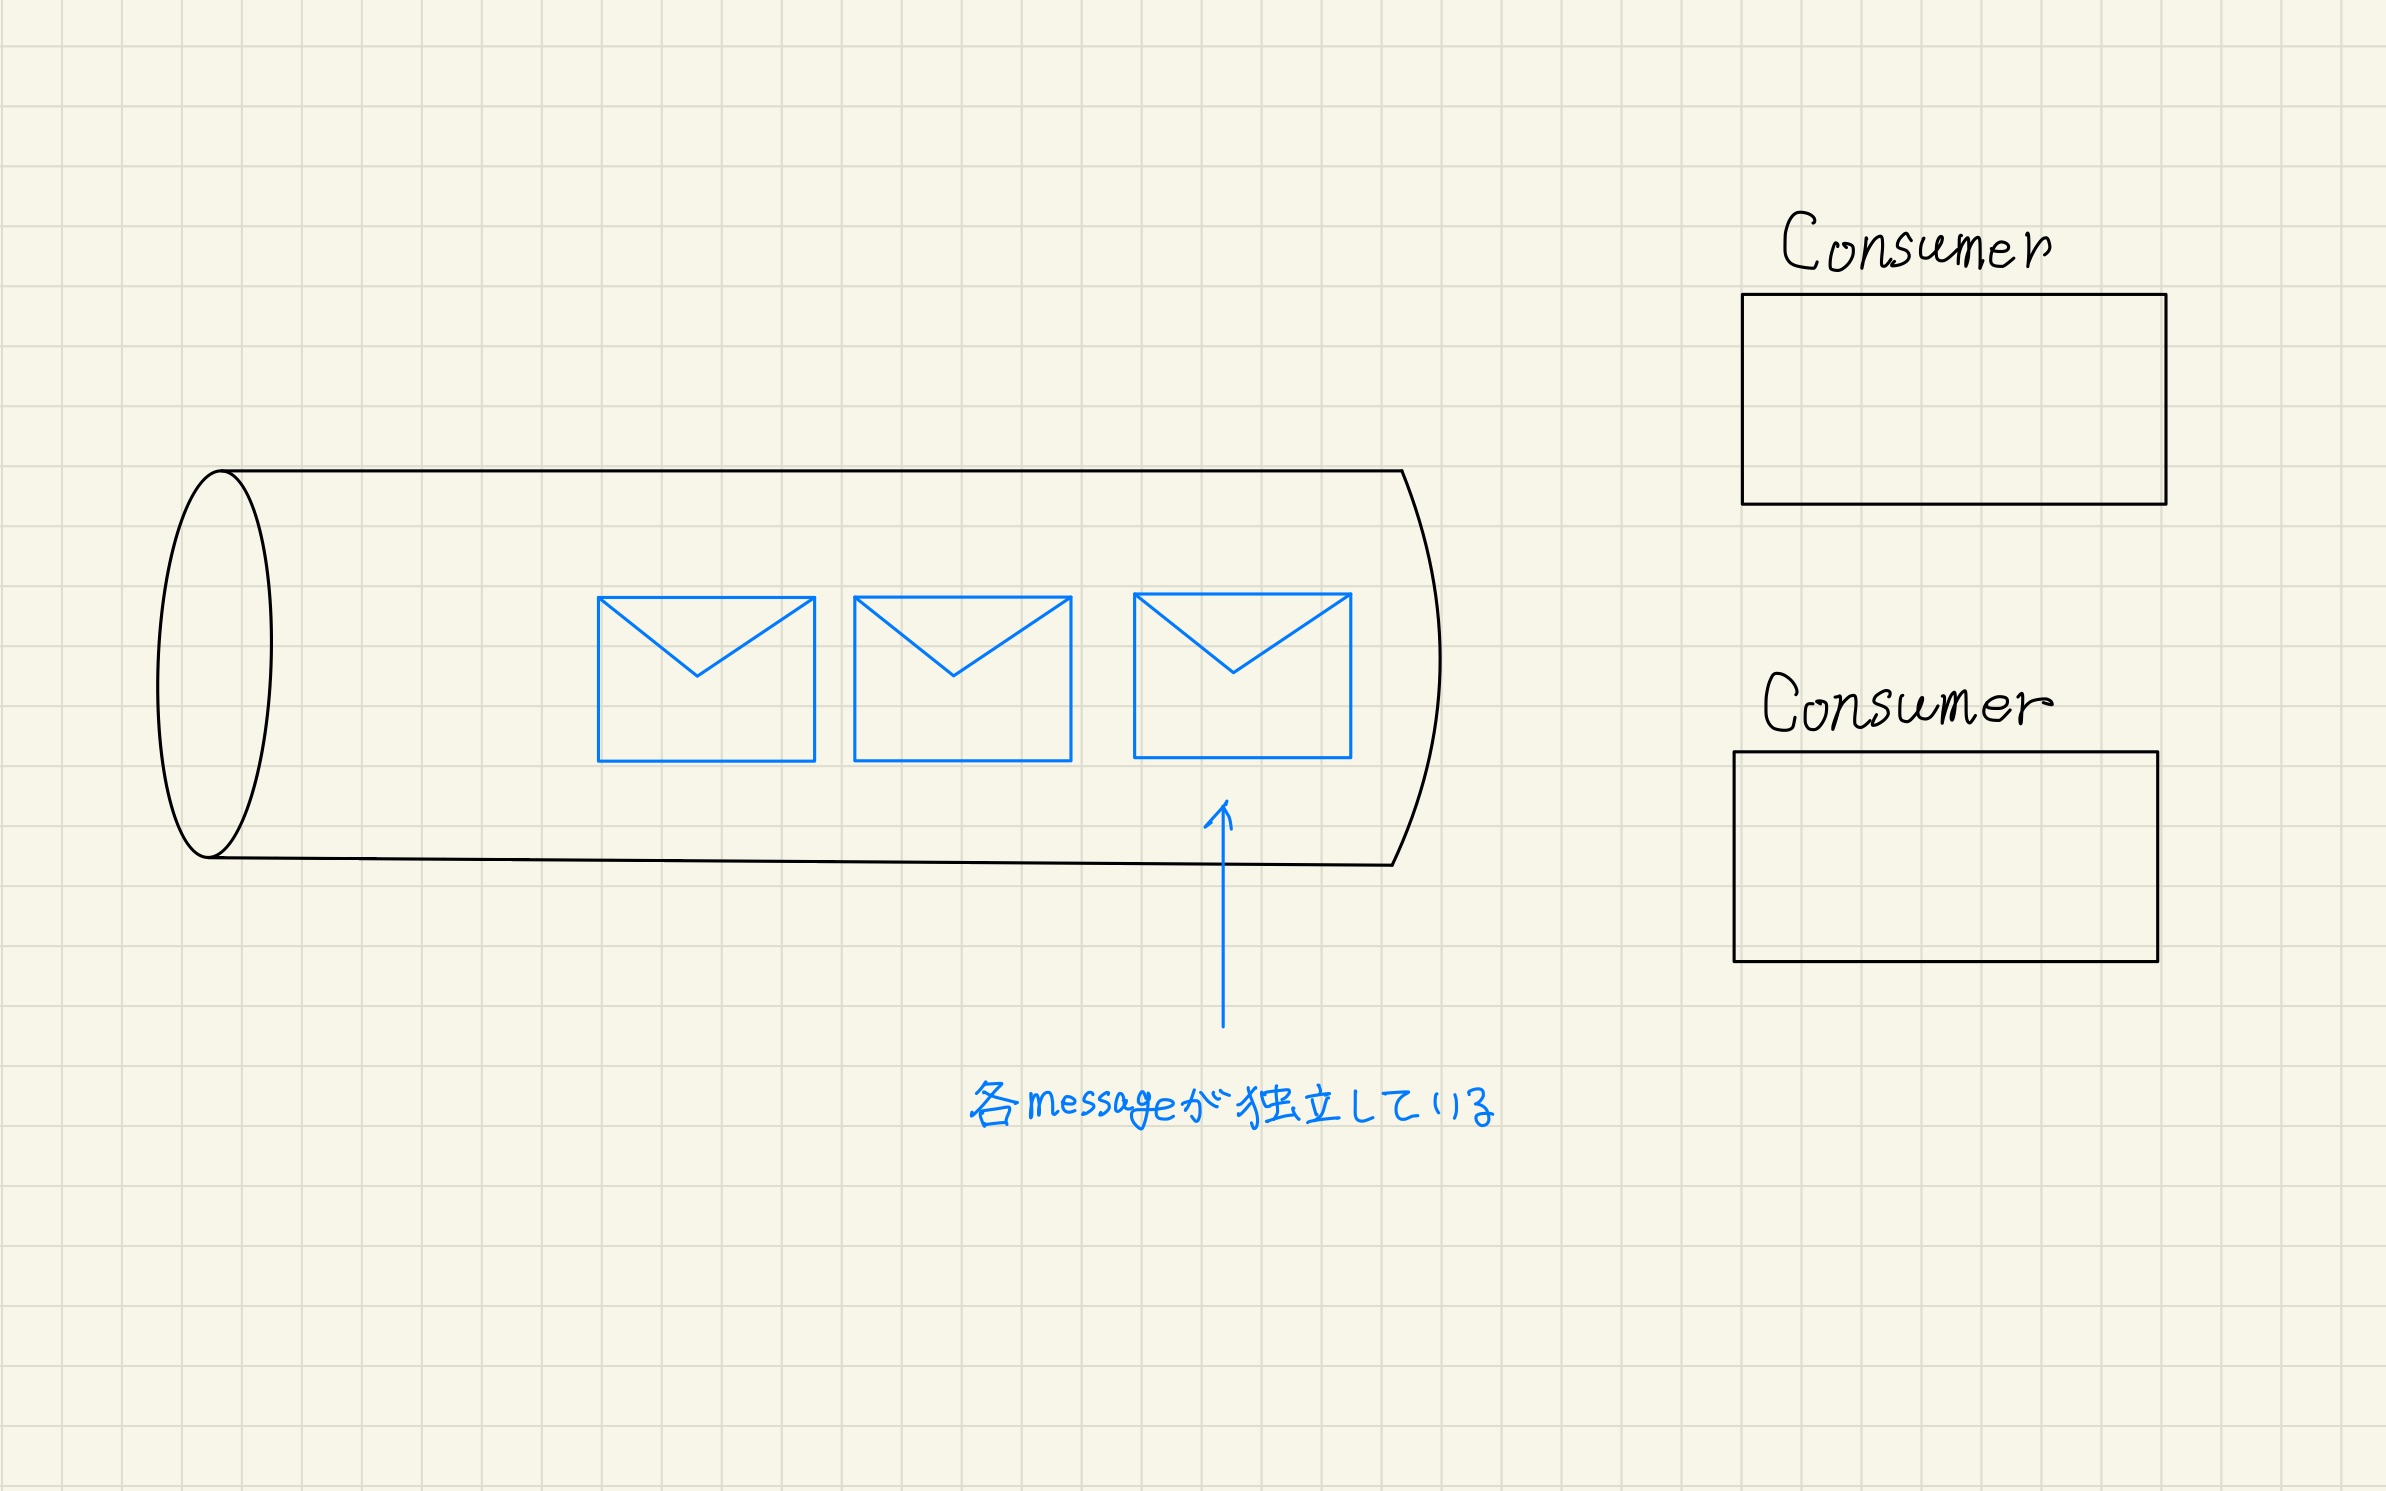 Consumer
Consumer
各messageが独立している